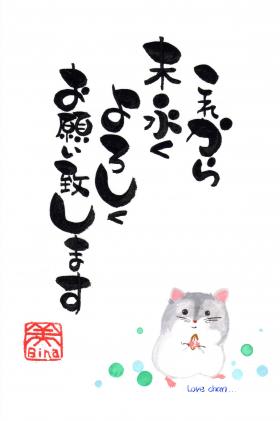 これから
末永く
よろしく
お願い致します
美
Bina
Love chan...